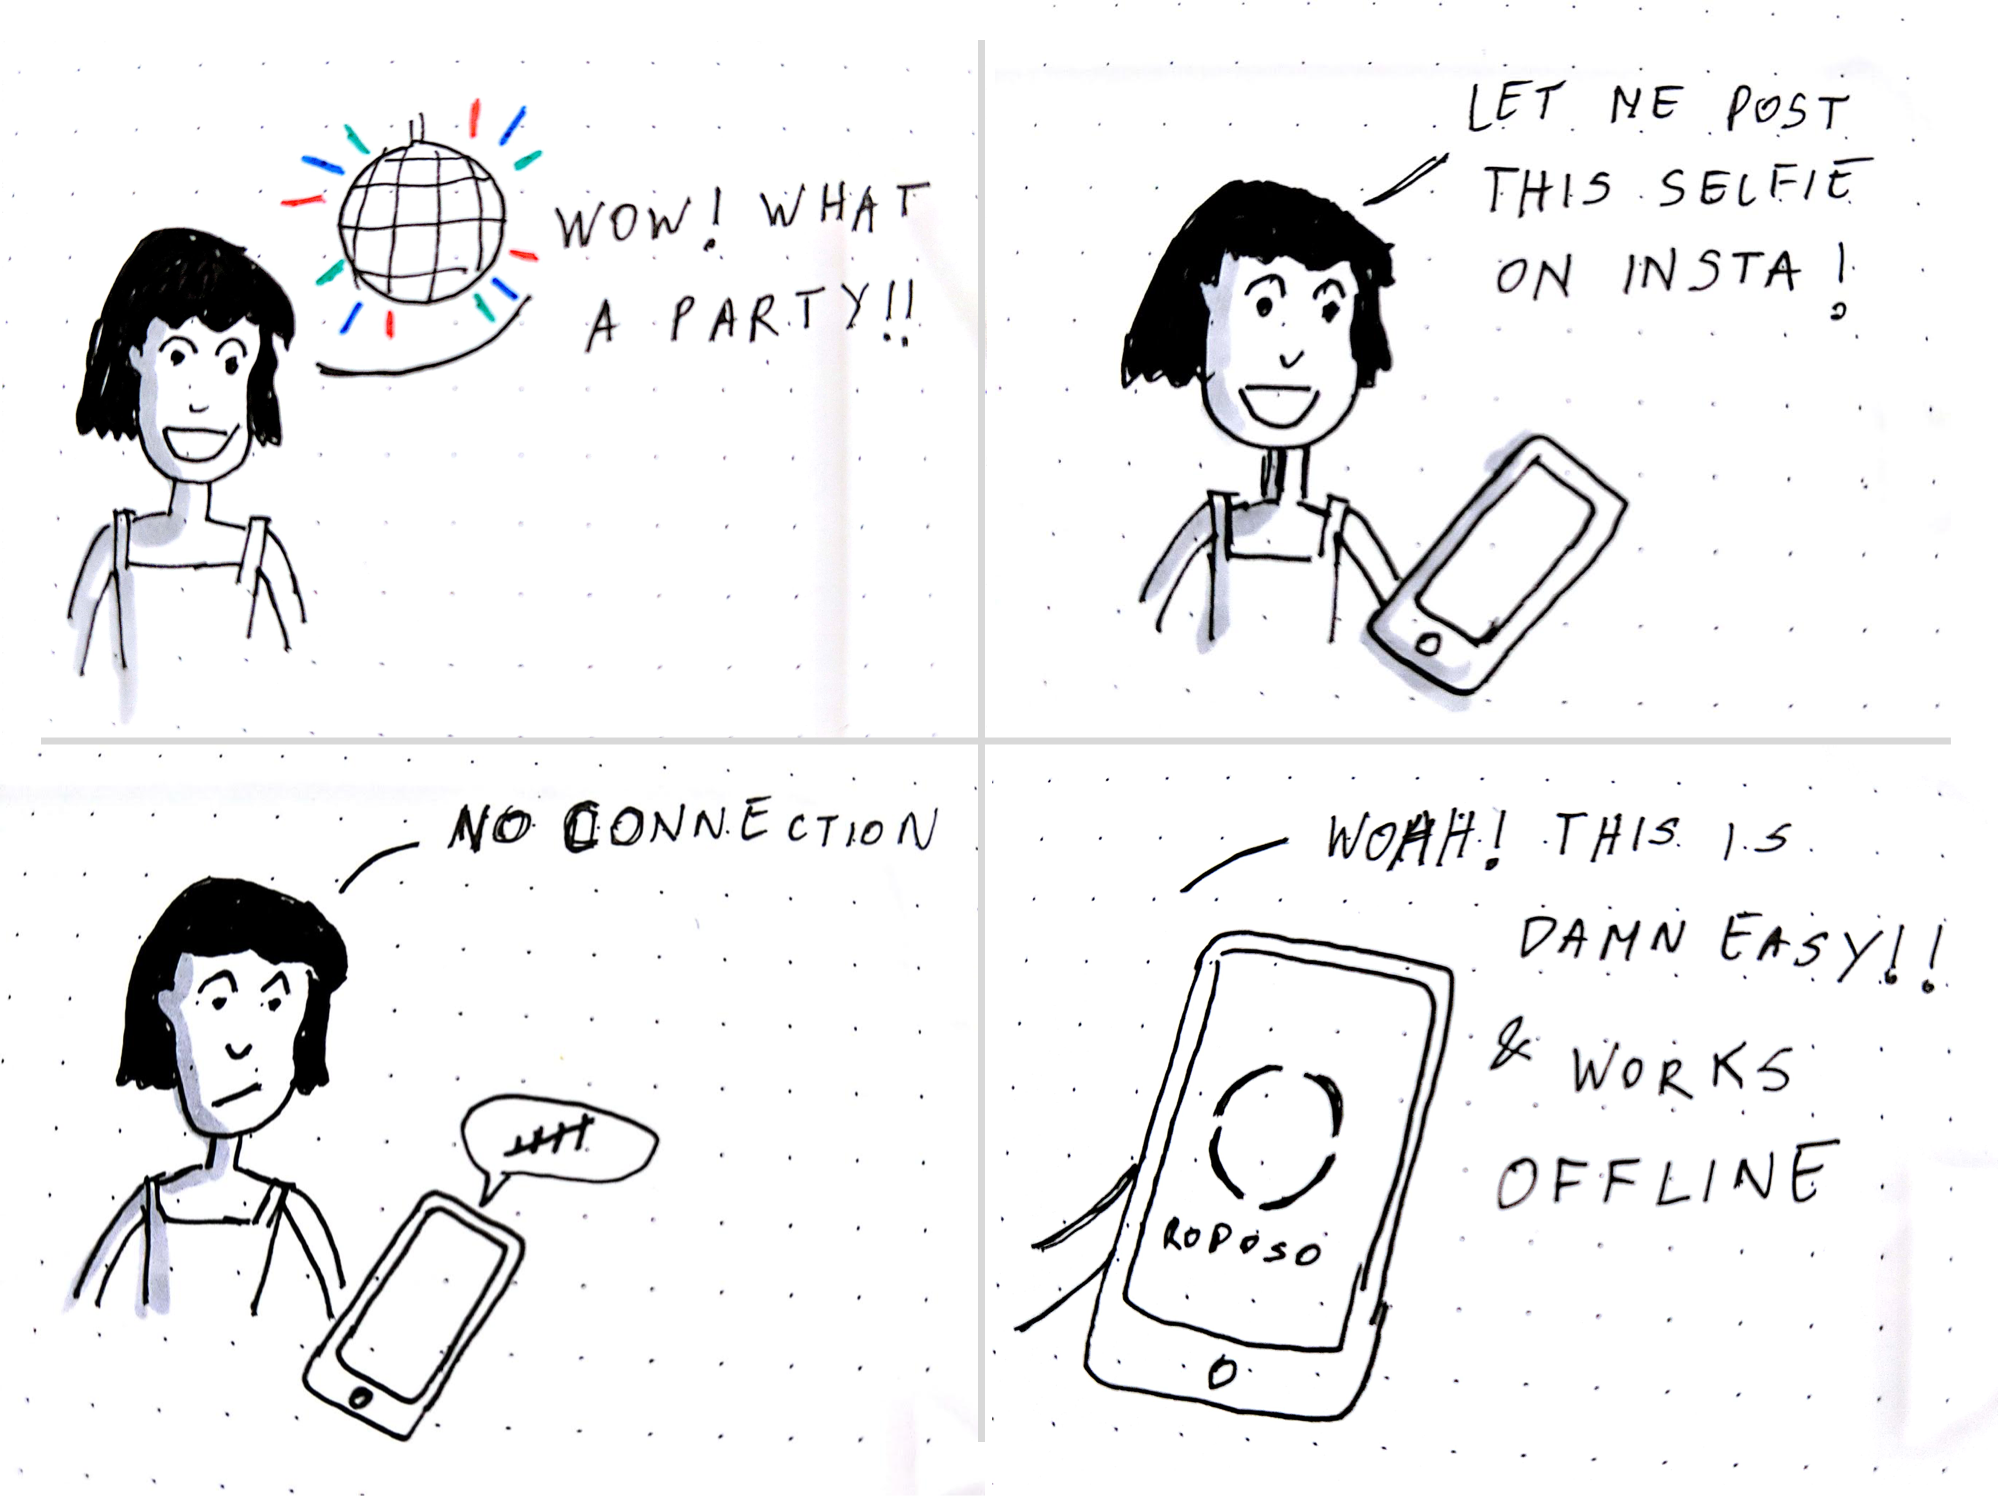 WOW! WHAT
A PARTY!!
LET ME POST
THIS SELFIE
ON INSTA!
NO CONNECTION
WOAH! THIS IS
DAMN EASY!!
& WORKS
OFFLINE
ROPOSO